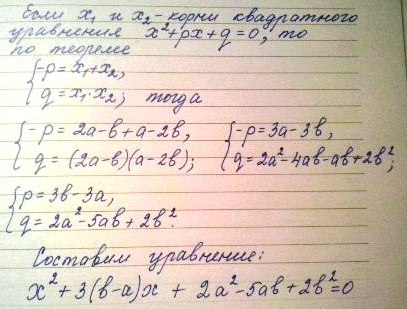 Если x₁ и x₂ - корни квадратного
уравнения x²+px+q=0, то
по теореме
{-p=x₁+x₂,
{q=x₁·x₂; тогда
{-p=2a-b+a-2b, {-p=3a-3b,
{q=(2a-b)(a-2b); {q=2a²-4ab-ab+2b²;
{p=3b-3a,
{q=2a²-5ab+2b².
Составим уравнение:
x²+3(b-a)x + 2a²-5ab+2b²=0